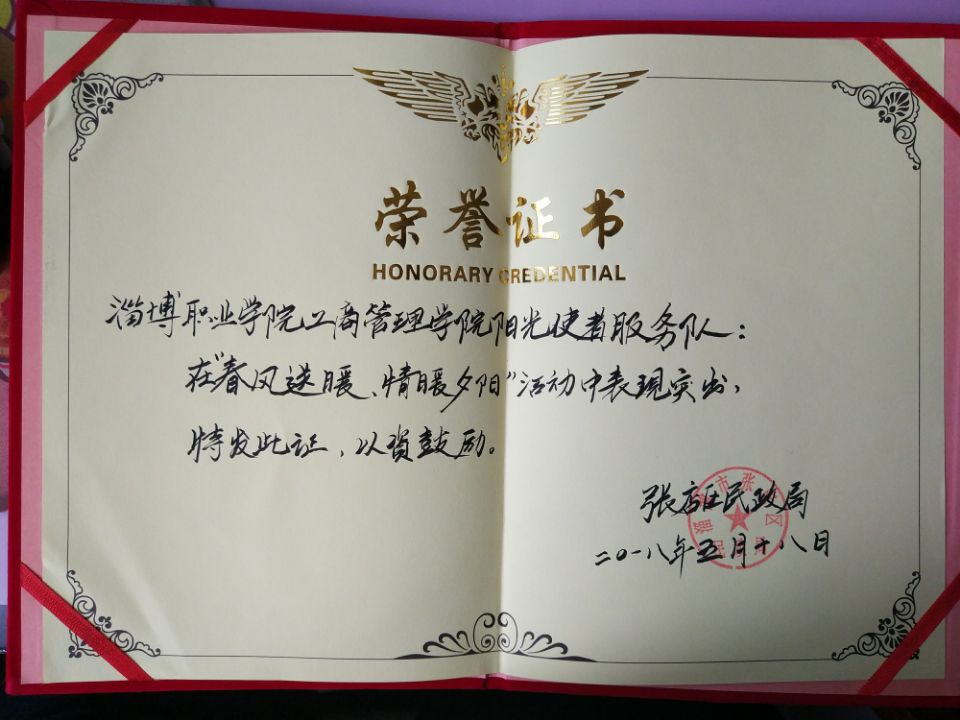 荣誉证书
HONORARY CREDENTIAL
淄博职业学院工商管理学院阳光使者服务队：
在“春风送暖、情暖夕阳”活动中表现突出，
特发此证，以资鼓励。
张店区民政局
二〇一八年五月十八日